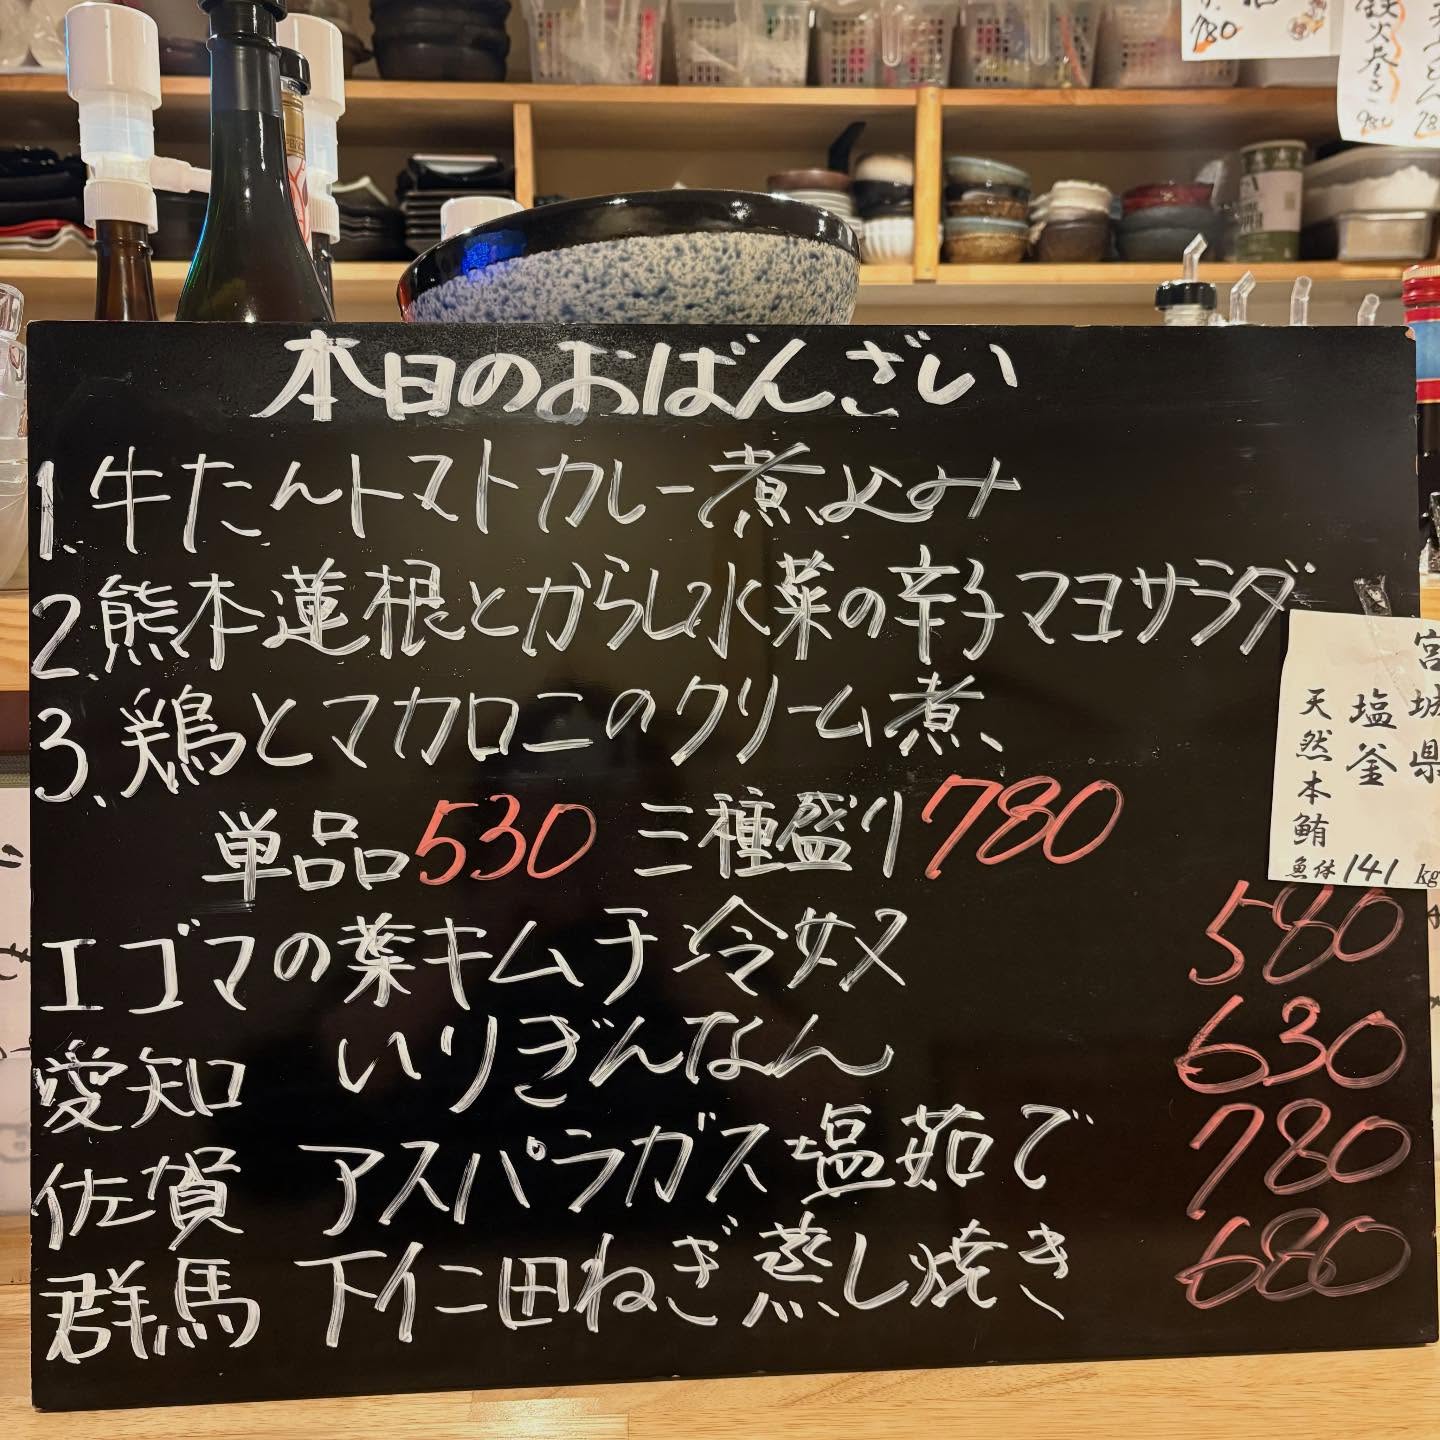 780
鉄火巻き
980
本日のおばんざい
1.牛たんトマトカレー煮込み
2.熊本蓮根とからし水菜の辛子マヨサラダ
3.鶏とマカロニのクリーム煮、
単品530 三種盛り780
エゴマの葉キムチ冷奴 580
愛知 いりぎんなん 630
佐賀 アスパラガス塩茹で 780
群馬 下仁田ねぎ蒸し焼き 680
宮城県
塩釜
天然本鮪
魚体141kg